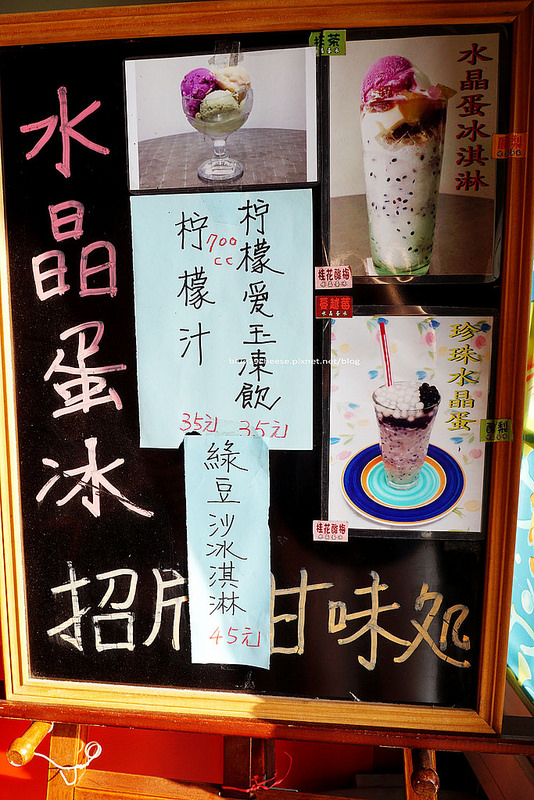 水晶蛋冰
招牌甘味処
水晶蛋冰淇淋
珍珠水晶蛋
檸檬愛玉凍飲
35元
檸檬汁
700cc
35元
綠豆沙冰淇淋
45元
桂花酸梅
蔓越莓
桂花酸梅